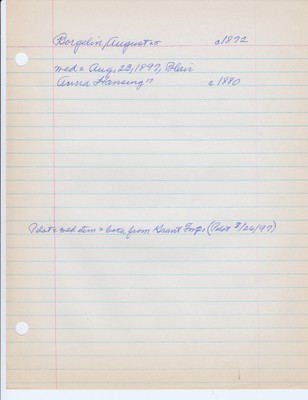 Borgelin, August 25 c1872
med = Aug. 23, 1897, Blair
Anna Hansing 17 c 1880
Pdat = med item = both from Grant Twp. (Pdat 8/26/97)